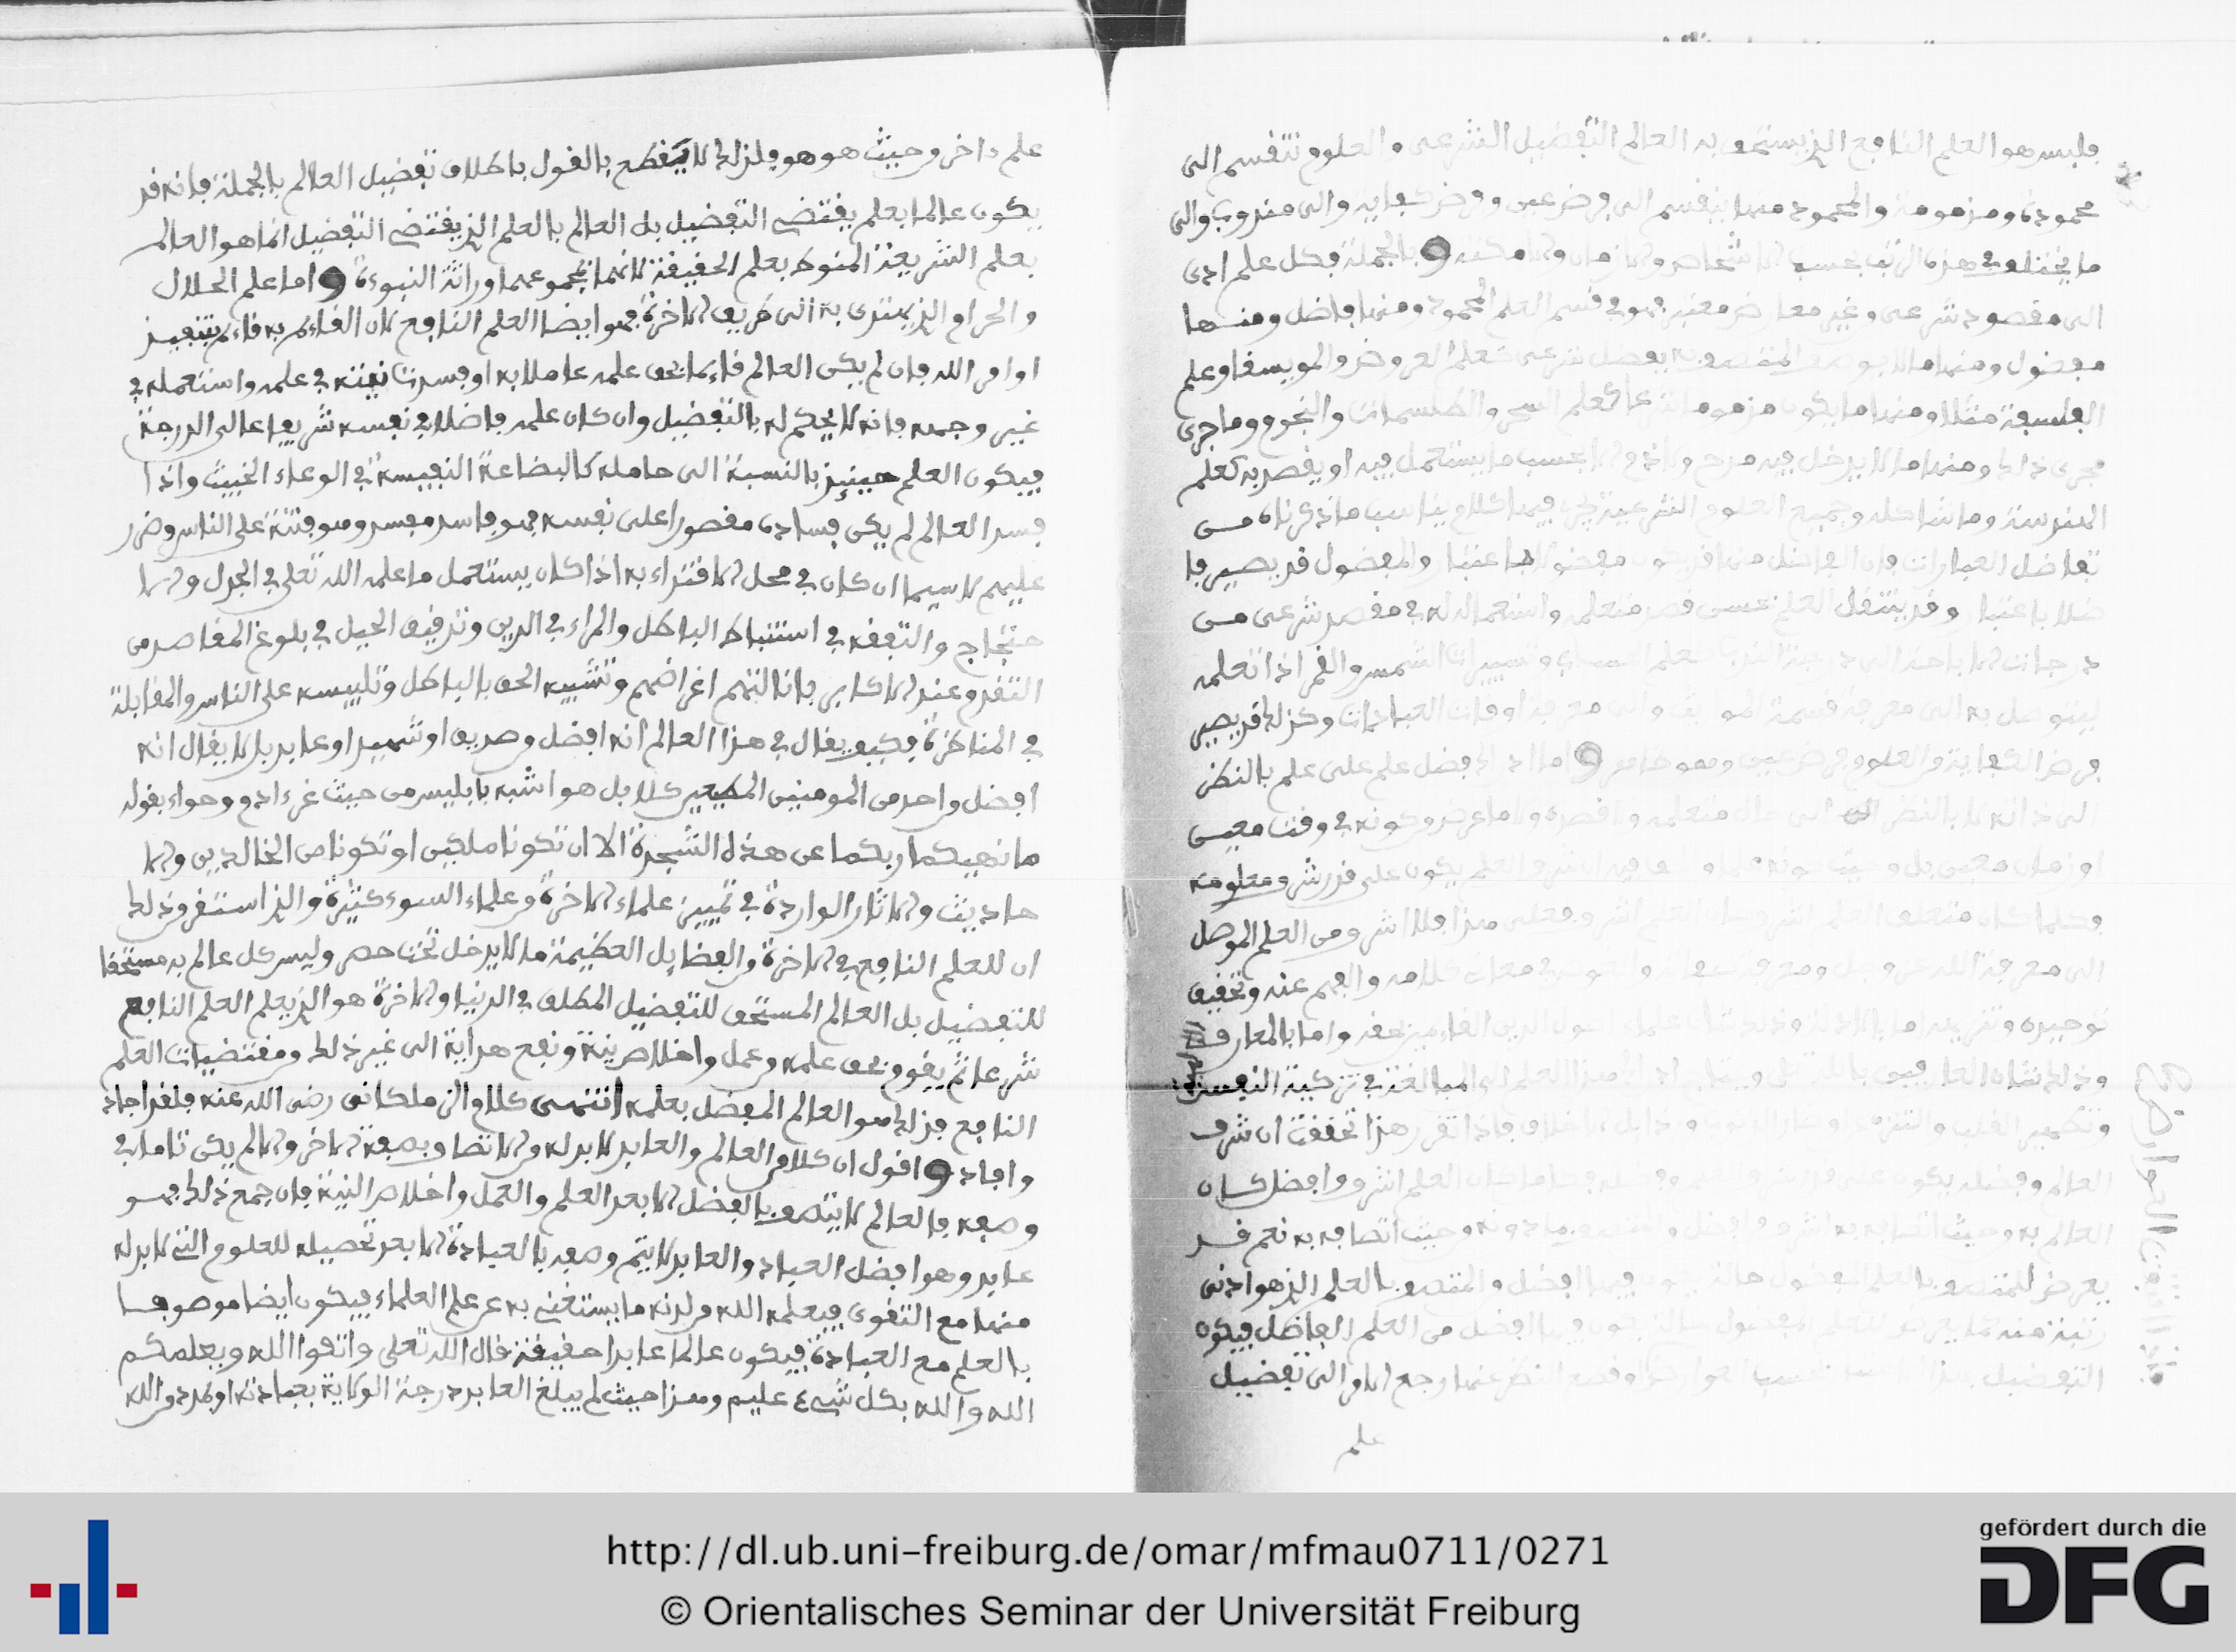 فليس هو العلم النافع الذي يستحق به العالم التفضيل الشرعي والعلوم تنقسم الى
محمودة ومذمومة والمحمود منها ينقسم الى فرض عين وفرض كفاية والى مندوب والى
ما يختلف في هذه الرتب بحسب الاشخاص والازمان والامكنة وبالجملة فكل علم ادى
الى مقصود شرعي وغير معارض معتبر فهو في قسم العلم المحمود ومنها فاضل ومنها
مفضول ومنها ما لا يوصف المتصف به بفضل شرعي كعلم العروض والمويسقا وعلم
الفلسفة مثلا ومنها ما يكون مذموما شرعا كعلم السحر والطلسمات والنجوم وما جرى
مجرى ذلك ومنها ما لا يدخل فيه مدح ولا ذم الا بحسب ما يستعمل فيه او يقصد به كعلم
الهندسة وما شاكله وجميع العلوم الشرعية يجري فيها كلام يناسب ما ذكرناه من
تفاضل العبارات فان الفاضل منها قد يكون مفضولا باعتبار والمفضول قد يصير فا
ضلا باعتبار وقد ينتقل العلم بحسن قصد متعلمه واستعماله له في مقصد شرعي من
درجات الاباحة الى درجة القربات كعلم الحساب وتسييرات الشمس والقمر اذا تعلمه
ليتوصل به الى معرفة قسمة المواريث والى معرفة اوقات العبادات وكذلك قد يصير
فرض الكفاية والعلوم فرض عين وهو حاصل واما اذا فضل علم على علم بالنظر
الى ذاته لا بالنظر الى حال متعلمه ولا قصده ولا ما عرض وكونه في وقت معين
او زمان معين بل وحيث كونه علما و فيه اشرف والعلم يكون على قدر شرف معلومه
وكلما كان متعلق العلم اشرف كان العلم اشرف فعلى هذا فلا اشرف من العلم الموصل
الى معرفة الله عز وجل ومعرفة صفاته و في معاني كلامه والفهم عنه وتحقيق
توحيده وتنزيهه اما بالادلة وذلك شان علماء اصول الدين القائمين بحقه واما بالمعارف
وذلك شان العارفين بالله تعالى المبالغة في تزكية النفس
وتطهير القلب والتنزه الاخلاق فاذا تقرر هذا تحققت ان شرف
العالم وفضله يكون على قدر فكلما كان العلم اشرف وافضل كان
العالم به وحيث اتصافه به اشرف وافضل ما دونه وحيث اتصافه به نعم قد
يعرض للمتصف بالعلم المفضول حالة يكون فيها افضل والمتصف بالعلم الذي هو ادنى
رتبة منه كما يعرض للعلم المفضول حالة يكون فيها افضل من العلم الفاضل فيكون
التفضيل بحسب العوارض وقطع النظر عنها رجع الامر الى تفضيل
علم
علم ءاخر وحيث هو هو فلذلك لا يقطع بالقول باطلاق تفضيل العالم بالجملة فانه قد
يكون عالما بعلم يقتضي التفضيل بل العالم بالعلم الذي يقتضي التفضيل انما هو العالم
بعلم الشريعة المنوط بعلم الحقيقة لانهما بمجموعهما وراثة النبوءة واما علم الحلال
والحرام الذي يهتدى به الى طريق الاخرة فهو ايضا العلم النافع لان القائم به قائم بتنفيذ
اوامر الله فان لم يكن العالم قائما بحق علمه عاملا به او فسدت نيته في علمه واستعمله في
غير وجهه فانه لا يحكم له بالتفضيل وان كان علمه فاضلا في نفسه شريفا عالي الدرجة
فيكون العلم حينيذ بالنسبة الى حامله كالبضاعة النفيسة في الوعاء الخبيث واذا
فسد العالم لم يكن فساده مقصورا على نفسه فهو فاسد مفسد وهو فتنة على الناس وضرر
عليهم لا سيما ان كان في محل الاقتداء به اذا كان يستعمل ما علمه الله تعلى في الجدل والا
حتجاج والتفقه في استنباط الباطل والمراء في الدين وتدقيق الحيل في بلوغ المقاصد من
التقدم عند الاكابر بانالتهم اغراضهم وتشبيه الحق بالباطل وتلبيسه على الناس والمقابلة
في المناظرة فكيف يقال في هذا العالم انه افضل وصديق او شهيد او عابد بل لا يقال انه
افضل واحد من المومنين المطيعين كلا بل هو اشبه بابليس من حيث غر ءادم وحواء بقوله
ما نهيكما ربكما عن هذه الشجرة الا ان تكونا ملكين او تكونا من الخالدين والا
حاديث والاثار الواردة في تمييز علماء الاخرة وعلماء السوء كثيرة والذي استقر وذلك
ان للعلم النافع في الاخرة والفضايل العظيمة ما لا يدخل تحت حصر وليس كل عالم به مستحقا
للتفضيل بل العالم المستحق للتفضيل المطلق في الدنيا والاخرة هو الذي يعلم العلم النافع
شرعا ثم يقوم بحق علمه وعمل واخلاص نية ونفع هداية الى غير ذلك ومقتضيات العلم
النافع فذلك هو العالم المفضل بعلمه انتهى كلام الزملكاني رضي الله عنه فلقد اجاد
وافاد واقول ان كلا من العالم والعابد لا بد له والاتصاف بصفة الاخر والا لم يكن تاما في
وصفه فالعالم لا يتصف بالفضل الا بعد العلم والعمل واخلاص النية فان جمع ذلك فهو
عابد وهو افضل العباد والعابد لا يتم وصفه بالعبادة الا بعد تحصيله للعلوم التي لا بد له
منها مع التقوى فيعلمه الله ولدنه ما يستغني به عن علم العلماء فيكون ايضا موصوفا
بالعلم مع العبادة فيكون عالما عابدا حقيقة قال الله تعلى واتقوا الله ويعلمكم
الله والله بكل شيء عليم وهذا حيث لم يبلغ العابد درجة الولاية بعبادته او بمدد والله
http://dl.ub.uni-freiburg.de/omar/mfmau0711/0271
© Orientalisches Seminar der Universität Freiburg
gefördert durch die
DFG